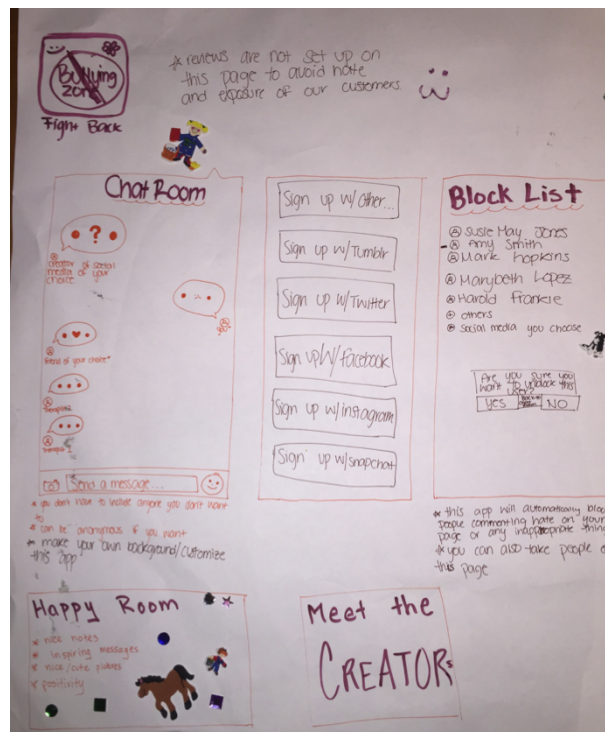 Bullying
Zone
Fight Back
* reviews are not set up on
this page to avoid hate
and exposure of our customers.
Chat Room
?
creator of social
media of your
choice
you
friend of your choice*
Send a message...
* you don't have to include anyone you don't want
to
* can be anonymous if you want
* make your own background/customize
this app
Sign up w/other...
Sign up w/Tumblr
Sign up w/Twitter
Sign up w/facebook
Sign up w/instagram
Sign up w/snapchat
Block List
Susie May Jones
Amy Smith
Mark Hopkins
Marybeth Lopez
Harold Frankie
others
social media you choose
Are you sure you
want to unblock this
user?
YES
NO
* this app will automatically block
people commenting hate on your
page or any inappropriate thing
* you can also take people o
this page
Happy Room
* nice notes
* inspiring messages
* nice/cute pictures
* positivity
Meet the
CREATORS